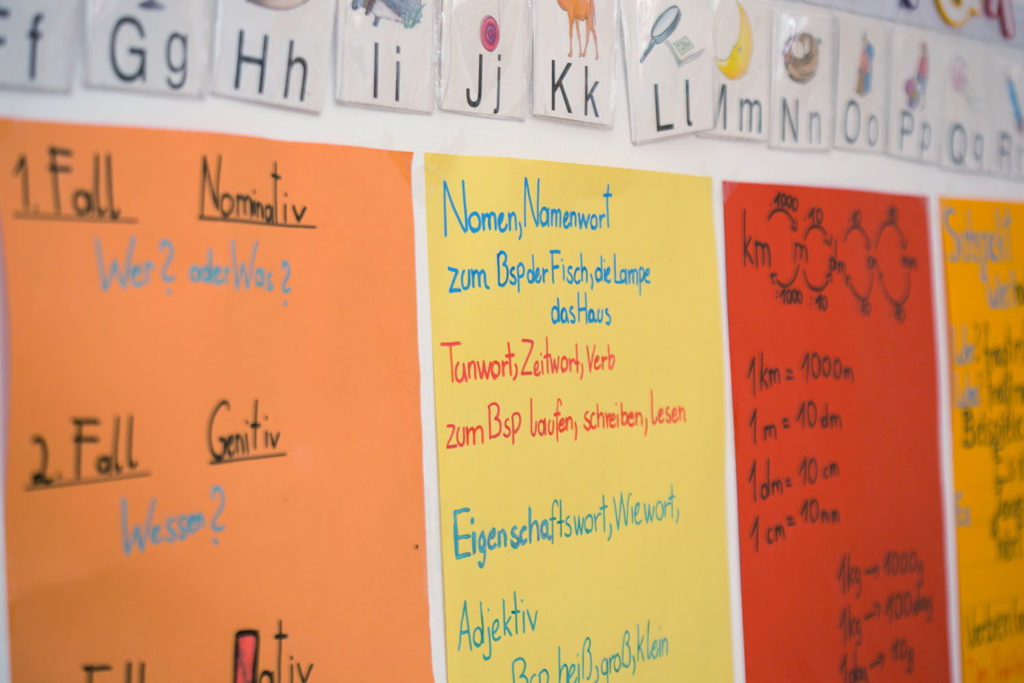 Ff Gg Hh Ii Jj Kk Ll Mm Nn Oo Pp Qq
1. Fall Nominativ
Wer? oder Was?
2. Fall Genitiv
Wessen?
Fall
Nomen, Namenwort
zum Bsp der Fisch, die Lampe
das Haus
Tunwort, Zeitwort, Verb
zum Bsp laufen, schreiben, lesen
Eigenschaftswort, Wiewort,
Adjektiv
Bsp heiß, groß, klein
1000 10 10 10
km m dm cm mm
:1000 :10 10 10
1km = 1000m
1m = 10 dm
1dm = 10 cm
1cm = 10mm
1kg → 1000g
1kg → 100dag
1dag → 10g